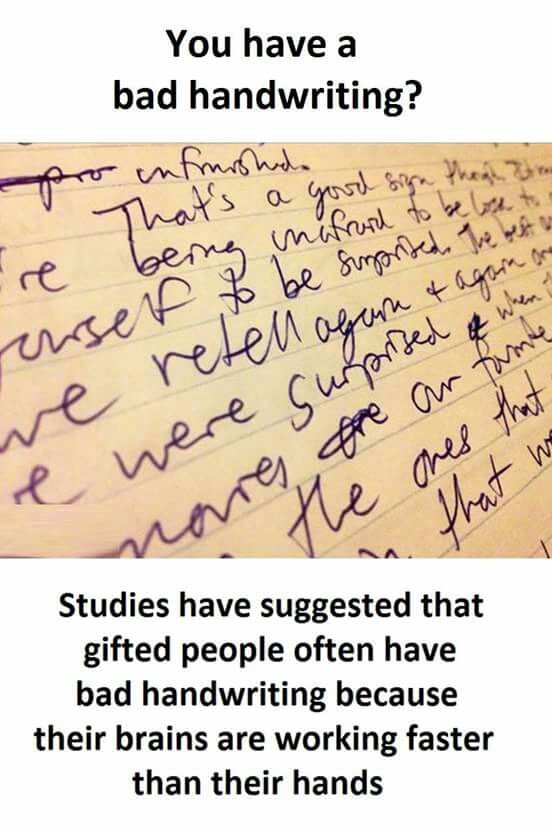 You have a
bad handwriting?
pro unfinished.
That's a good sign though
're being unafraid to be lose to
ourself to be surprised. The best
we retell again & again
e were surprised when
movies are our favorite
the ones that
that we
Studies have suggested that
gifted people often have
bad handwriting because
their brains are working faster
than their hands